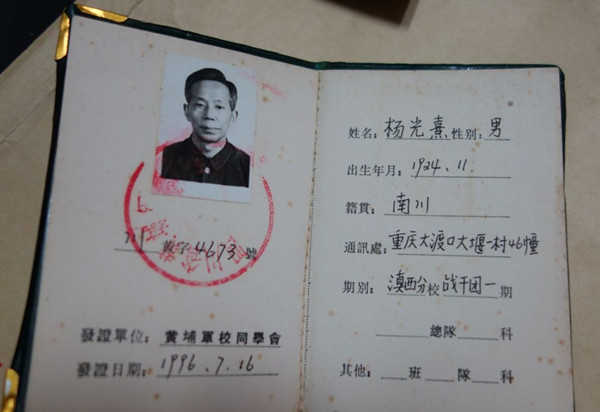 黄字4673號
發證單位：黄埔軍校同學會
發證日期：1996.7.16
姓名：杨光熹 性别：男
出生年月：1924.11
籍貫：南川
通訊處：重庆大渡口大堰一村46幢
期别：滇西分校战干团一期
總隊 科
其他： 班 隊 科